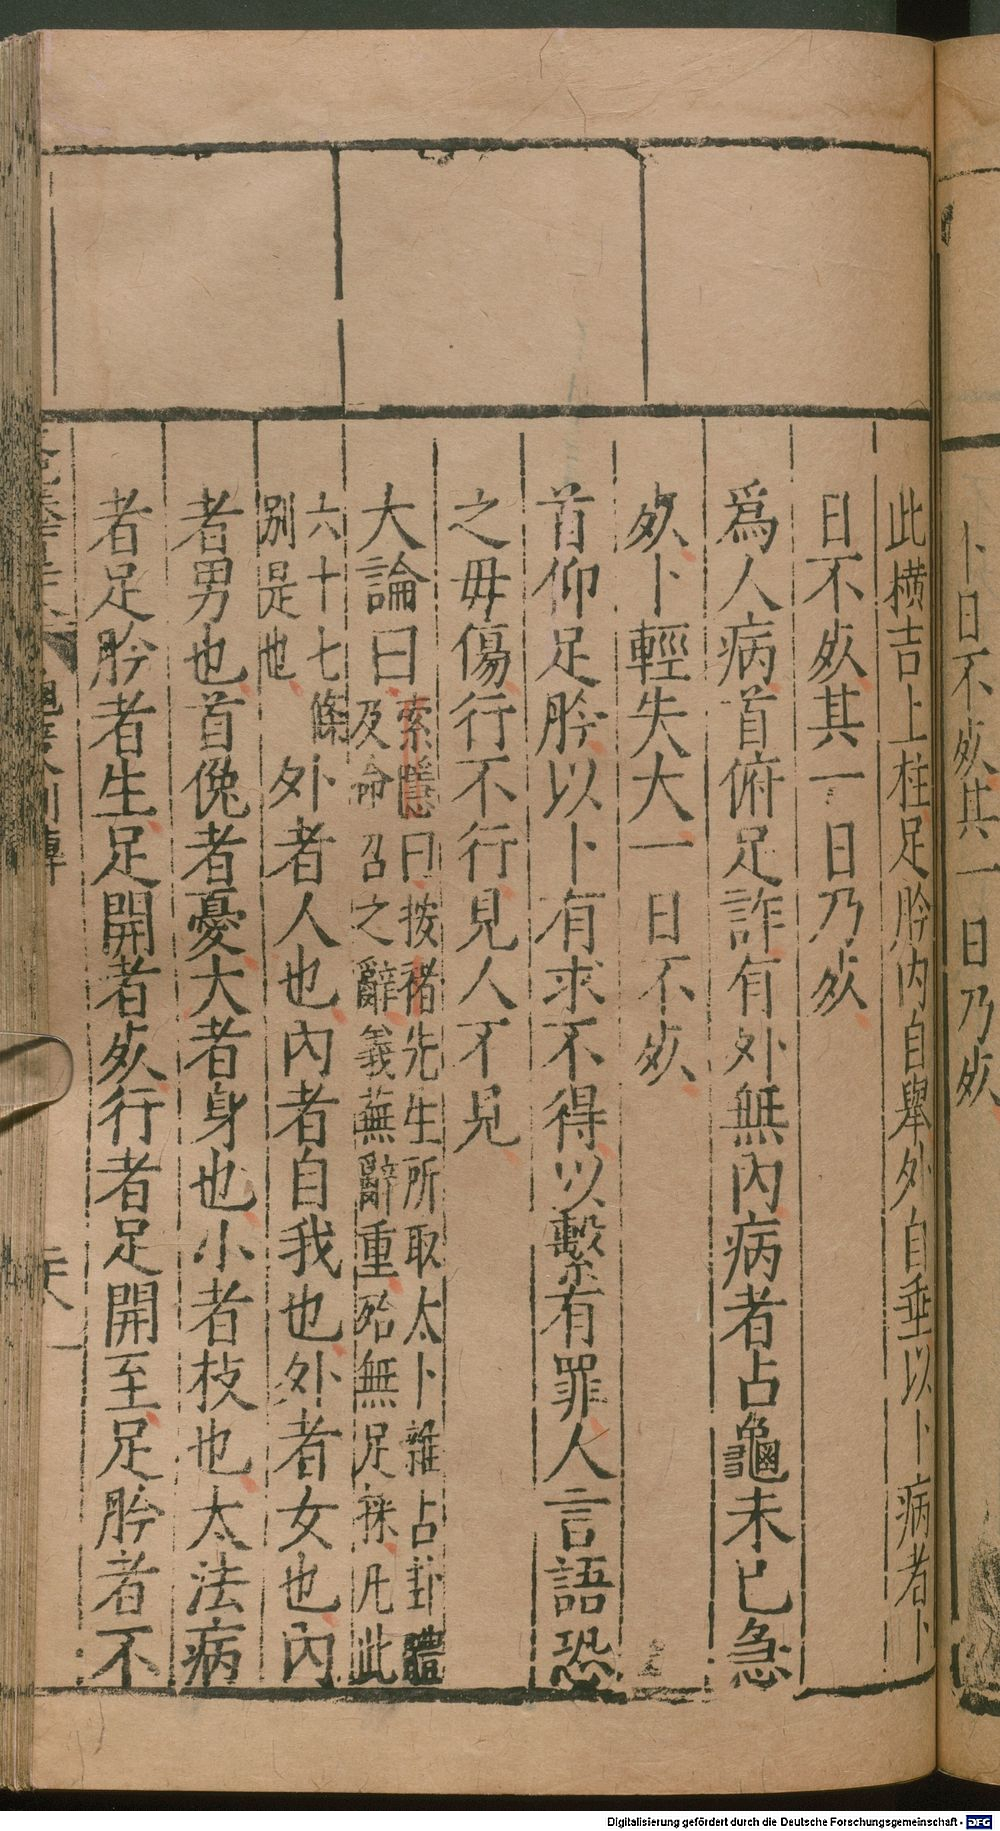 卜日不死其一日乃死
此横吉上柱足肣内自舉外自垂以卜病者卜
日不死其一日乃死
爲人病首俯足詐有外無內病者占龜未已急
死卜輕失大一日不死
首仰足肣以卜有求不得以繫有罪人言語恐
之毋傷行不行見人不見
大論曰索隱曰按褚先生所取太卜雜占卦體
及命召之辭義蕪辭重殆無足採凡此
六十七條
別是也
外者人也內者自我也外者女也內
者男也首俛者憂大者身也小者枝也太法病
者足肣者生足開者死行者足開至足肣者不
Digitalisierung gefördert durch die Deutsche Forschungsgemeinschaft - DFG